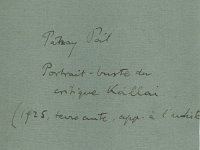 Pátzay Pál
Portrait-buste du
critique Kállai
(1925, terre cuite, app. à l'artiste